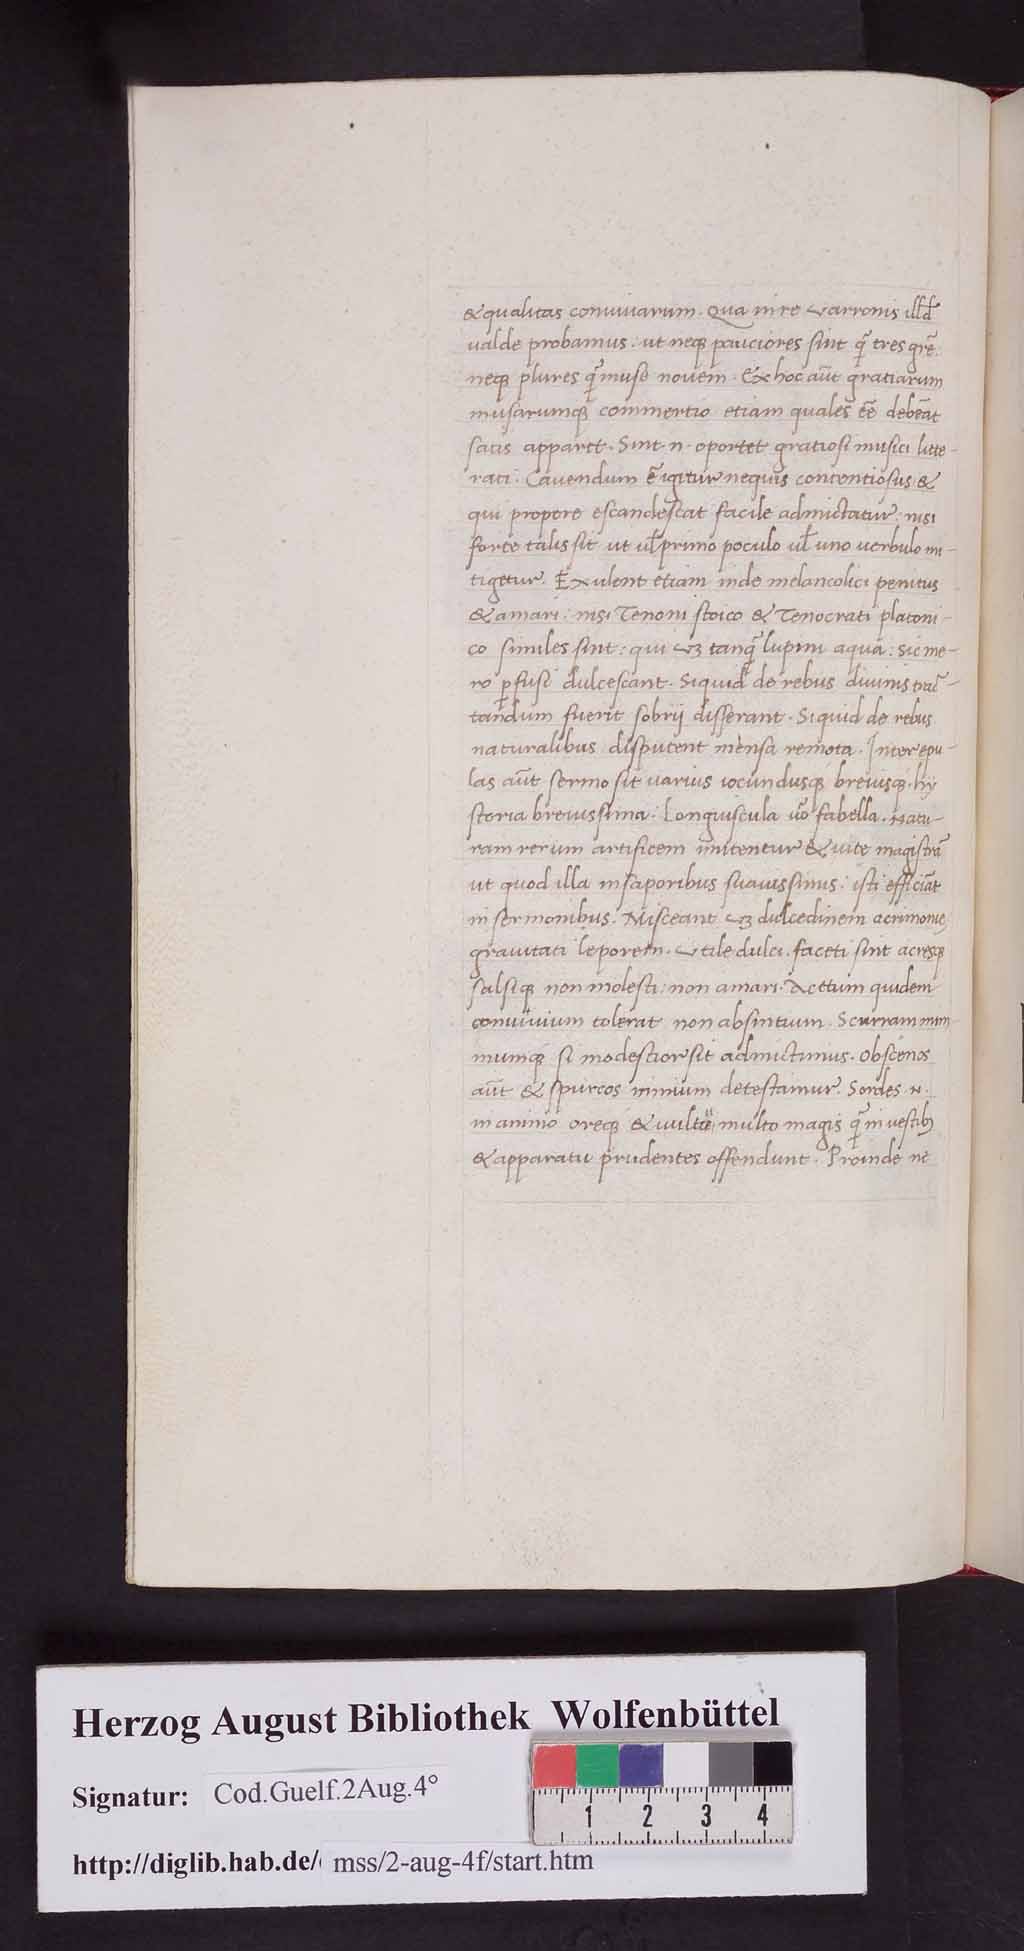 & qualitas conuiuarum. Qua in re Varronis illd̄
ualde probamus: ut neq; pauciores sint q̄ tres gr̄e.
neq; plures q̄ muse nouem. Ex hoc aūt gratiarum
musarumq; commertio etiam quales ēē debēāt
satis apparet. Sint .n. oportet gratiosi musici litte-
rati. Cauendum ē igitur nequis contentiosus &
qui propere escandescat facile admictatur: nisi
forte talis sit ut ul̄ primo poculo ul̄ uno uerbulo mi-
tigetur. Exulent etiam inde melancolici penitus
& amari: nisi Zenoni stoico & Zenocrati platoni-
co similes sint: qui uʒ tanq̄ lupini aqua: sic me-
ro p̄fusi dulcescant. Siquid de rebus diuinis trac̄-
tandum fuerit sobrij disserant. Siquid de rebus
naturalibus disputent mensa remota. Inter epu-
las aūt sermo sit uarius iocundusq; breuisq;. hy
storia breuissima: Longuiscula uō fabella. Natu-
ram rerum artificem imitentur & uite magistrā
ut quod illa in saporibus suauissimus: isti efficiāt
in sermonibus. Misceant uʒ dulcedinem acrimonie
grauitati leporem. Vtile dulci. faceti sint acresq;
salsiq; non molesti: non amari. Acetum quidem
conuiuium tolerat non absintium. Scurram mim
mumq; si modestior sit admictimus. Obscenos
aūt & spurcos nimium detestamur. Sordes .n.
in animo oreq; & uultu: multo magis q̄ in uestib;
& apparatu prudentes offendunt. Proinde ne
Herzog August Bibliothek Wolfenbüttel
Signatur: Cod.Guelf.2Aug.4°
1 2 3 4
http://diglib.hab.de/ mss/2-aug-4f/start.htm